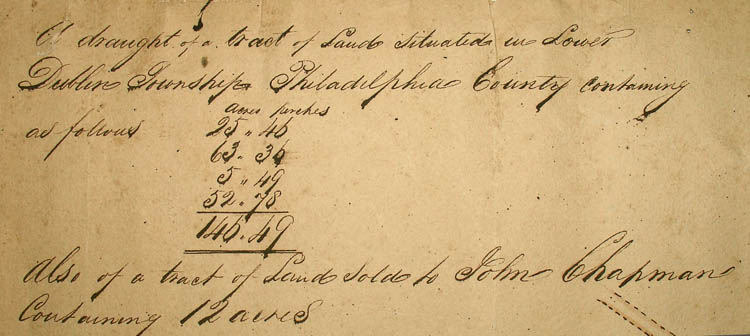 A draught of a tract of Land situated in Lower
Dublin Township Philadelphia County containing
acres perches
as follows 25 „ 46
63 „ 36
5 „ 49
52 „ 78
146 „ 49
Also of a tract of Land sold to John Chapman
Containing 12 acres